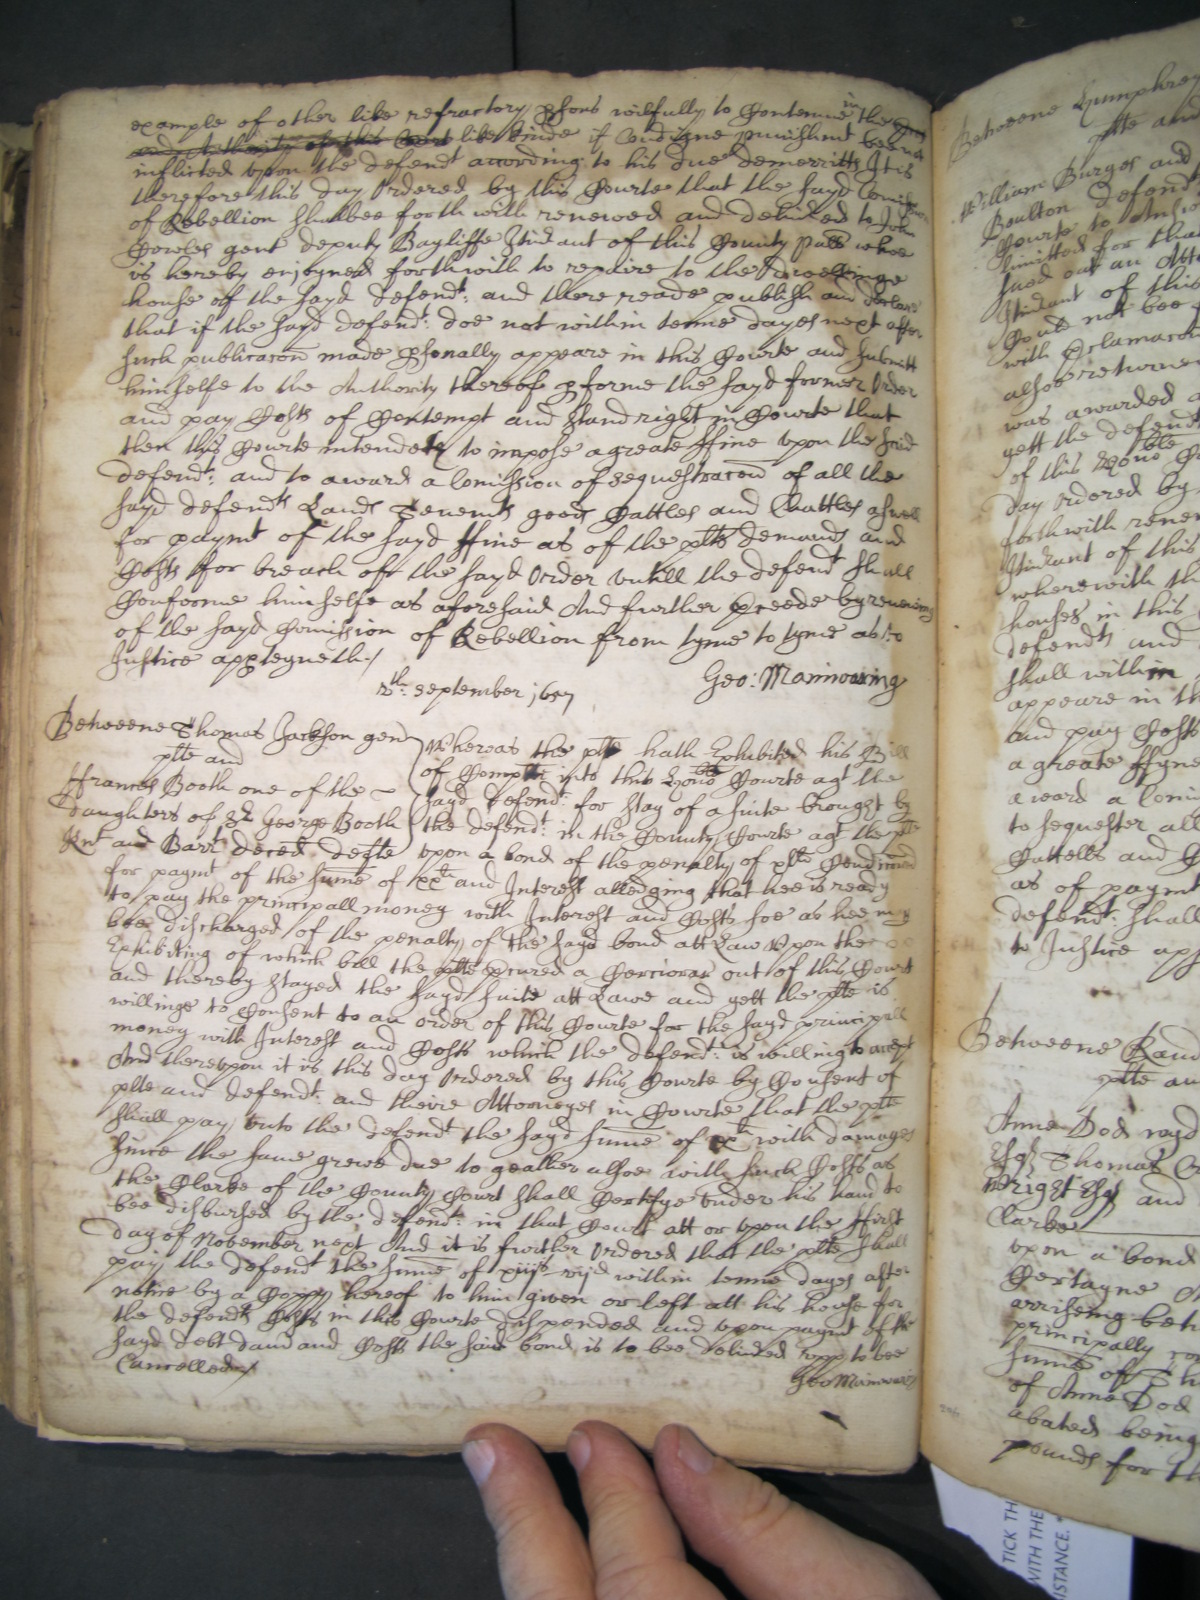 example of other like refractory psons wilfully to Contemne in the
and Authority of this Court like kinde if Condigne punishmt bee not
inflicted upon the defendt according to his due demerritts It is
therefore this day Ordered by this Courte that the sayd Comission
of Rebellion shalbee forthwith renewed and deliued to John
Cowles gent deputy Bayliffe Itinant of this County Pallt whoe
is hereby enjoyned forthwith to repaire to the dwellinge
house of the sayd defendt: and there reade publish and declare
that if the sayd defendt: doe not within tenne dayes next after
such publicacon made psonally appeare in this Courte and submitt
himselfe to the Authority thereof pforme the sayd former Order
and pay Costs of Contempt and stand right in Courte that
then this Courte intendeth to impose a greate ffine upon the said
defendt: and to award a Comission of sequestracon of all the
sayd defendts Lands Tenemts goods Cattles and Chattles aswell
for paymt of the sayd ffine as of the plts demands and
Costs for breach of the sayd Order untill the defendt shall
Conforme himselfe as aforesaid And further pceede by renewing
of the sayd Comission of Rebellion from tyme to tyme as to
Justice appteyneth/
Geo: Mainwaring
september 1657
Betweene Thomas Jackson gen
plte and
ffrances Booth one of the
daughters of Sr George Booth
Knt and Barrt deced defte
Whereas the plte hath Exhibited his Bill
of Complte into this Honoble Courte agt the
sayd defendt: for stay of a suite brought by
the defendt: in the County Courte agt the plte
upon a bond of the penalty of xlli Conditioned
for paymt of the sume of xxli and Interest alledging that hee is ready
to pay the principall money with Interest and Costs soe as hee may
bee discharged of the penalty of the sayd bond att Law Upon the
Exhibiting of which bill the plte pcured a Cerciorari out of this Court
and thereby stayed the sayd suite att Lawe and yett the plte is
willinge to Consent to an order of this Courte for the sayd principall
money with Interest and Costs which the defendt: is willing to accept
And thereupon it is this day Ordered by this Courte by Consent of
plte and defendt: and theire Attorneyes in Courte that the plte
shall pay unto the defendt the sayd sume of xxli with damages
since the same grewe due to geather alsoe with such Costs as
the Clarke of the County Court shall Certifye under his hand to
bee disbursed by the defendt: in that Court att or upon the ffirst
day of November next And it is further Ordered that the plte shall
pay the defendt the sume of xiijs within tenne dayes after
notice by a Coppy hereof to him given or left att his house for
the defendts Costs in this Courte dispended and upon paymt of the
sayd debt dam and Costs the said bond is to bee deliued upp to bee
Cancelled/
Geo Mainwaring
Betweene Humphrey
plte and
William Burges and
Boulton defend
Courte to Answ
limitted for that
sued out an Atta
Itinant of this
Could not bee
with Pclamacon
alsoe returned
was awarded a
yett the defendt
of this Honoble Co
day ordered by
forthwith renew
Itinant of this
wherewith the
houses in this
defendts and
shall within
appeare in th
and pay Costs
a greate ffyne
award a Comi
to sequester all
Cattells and C
as of paymt
defendt: shall
to Justice app
Betweene Rand
plte an
Anne Dod wyd
Esqr Thomas
Wright Esqr and
Clarke
upon a bond
Certayne
arriseing betw
principally
sume of
of Anne Dod
abated being
pounds for th
TICK TH
WITH THE
ISTANCE.